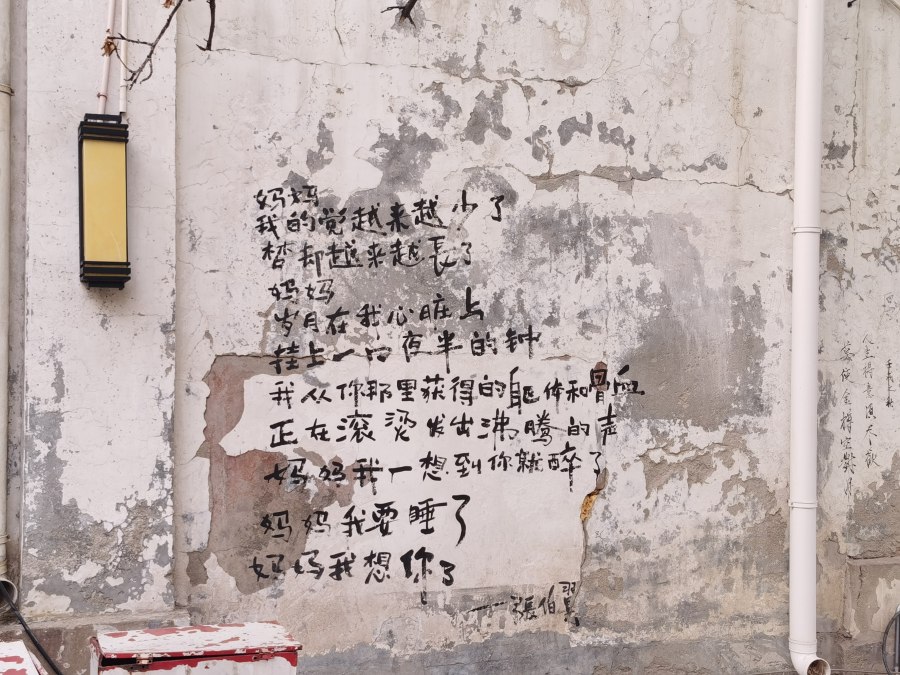 妈妈
我的觉越来越少了
梦却越来越長了
妈妈
岁月在我心脏上
挂上一口夜半的钟
我从你那里获得的躯体和骨血
正在滚烫发出沸腾的声
妈妈我一想到你就醉了
妈妈我要睡了
妈妈我想你了
——張伯翼
人生得意须尽歡
莫使金樽空對月